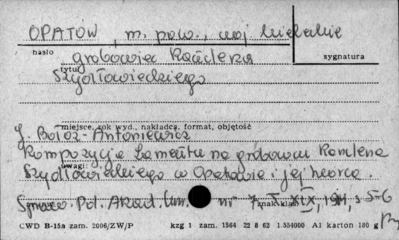 OPATÓW, m. pow., woj. kieleckie
hasło
grobowiec Kanclerza
tytuł
sygnatura
Szydłowieckiego
miejsce, rok wyd., nakładca, format, objętość
J. Bołoz-Antoniewicz
Kompozycja Lamentu na grobowcu Kanclerza
uwagi
Szydłowieckiego w Opatowie i jej twórca.
Sprawo. Pol. Akad. Um. nr 7 XIX, 1914, s 5-6
znak klas.
CWD B-15a zam. 2006/ZW/P kzg 1 zam. 1564 22 8 62 1.554000 Al karton 180 g